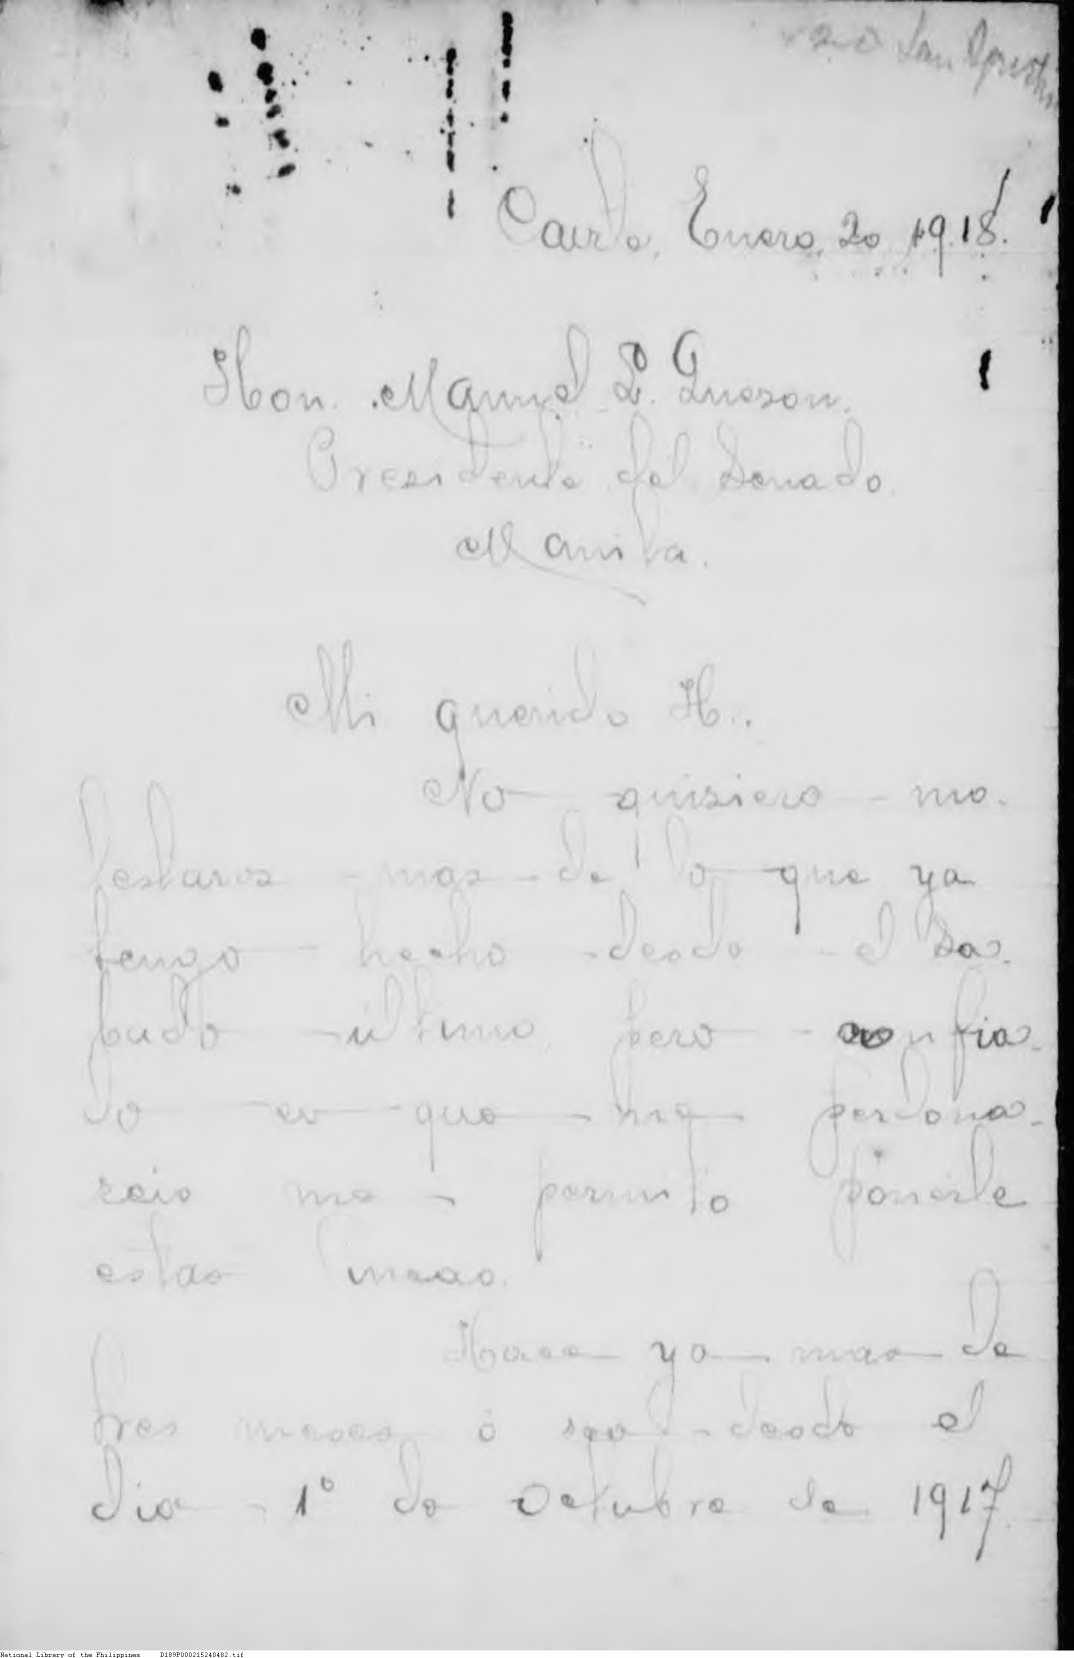 San Agustin
Cavite, Enero, 20 1918.
Hon. Manuel L. Quezon.
Presidente del Senado.
Manila.
Mi querido H..
No quisiera mo-
lestaros mas de lo que ya
tengo hecho desde el Sa-
bado ultimo, pero confia-
do en que me perdona-
reis me permito ponerle
estas lineas.
Hace ya mas de
tres meses ó sea desde el
dia 1º de Octubre de 1917.
National Library of the Philippines D189P000215240402.tif